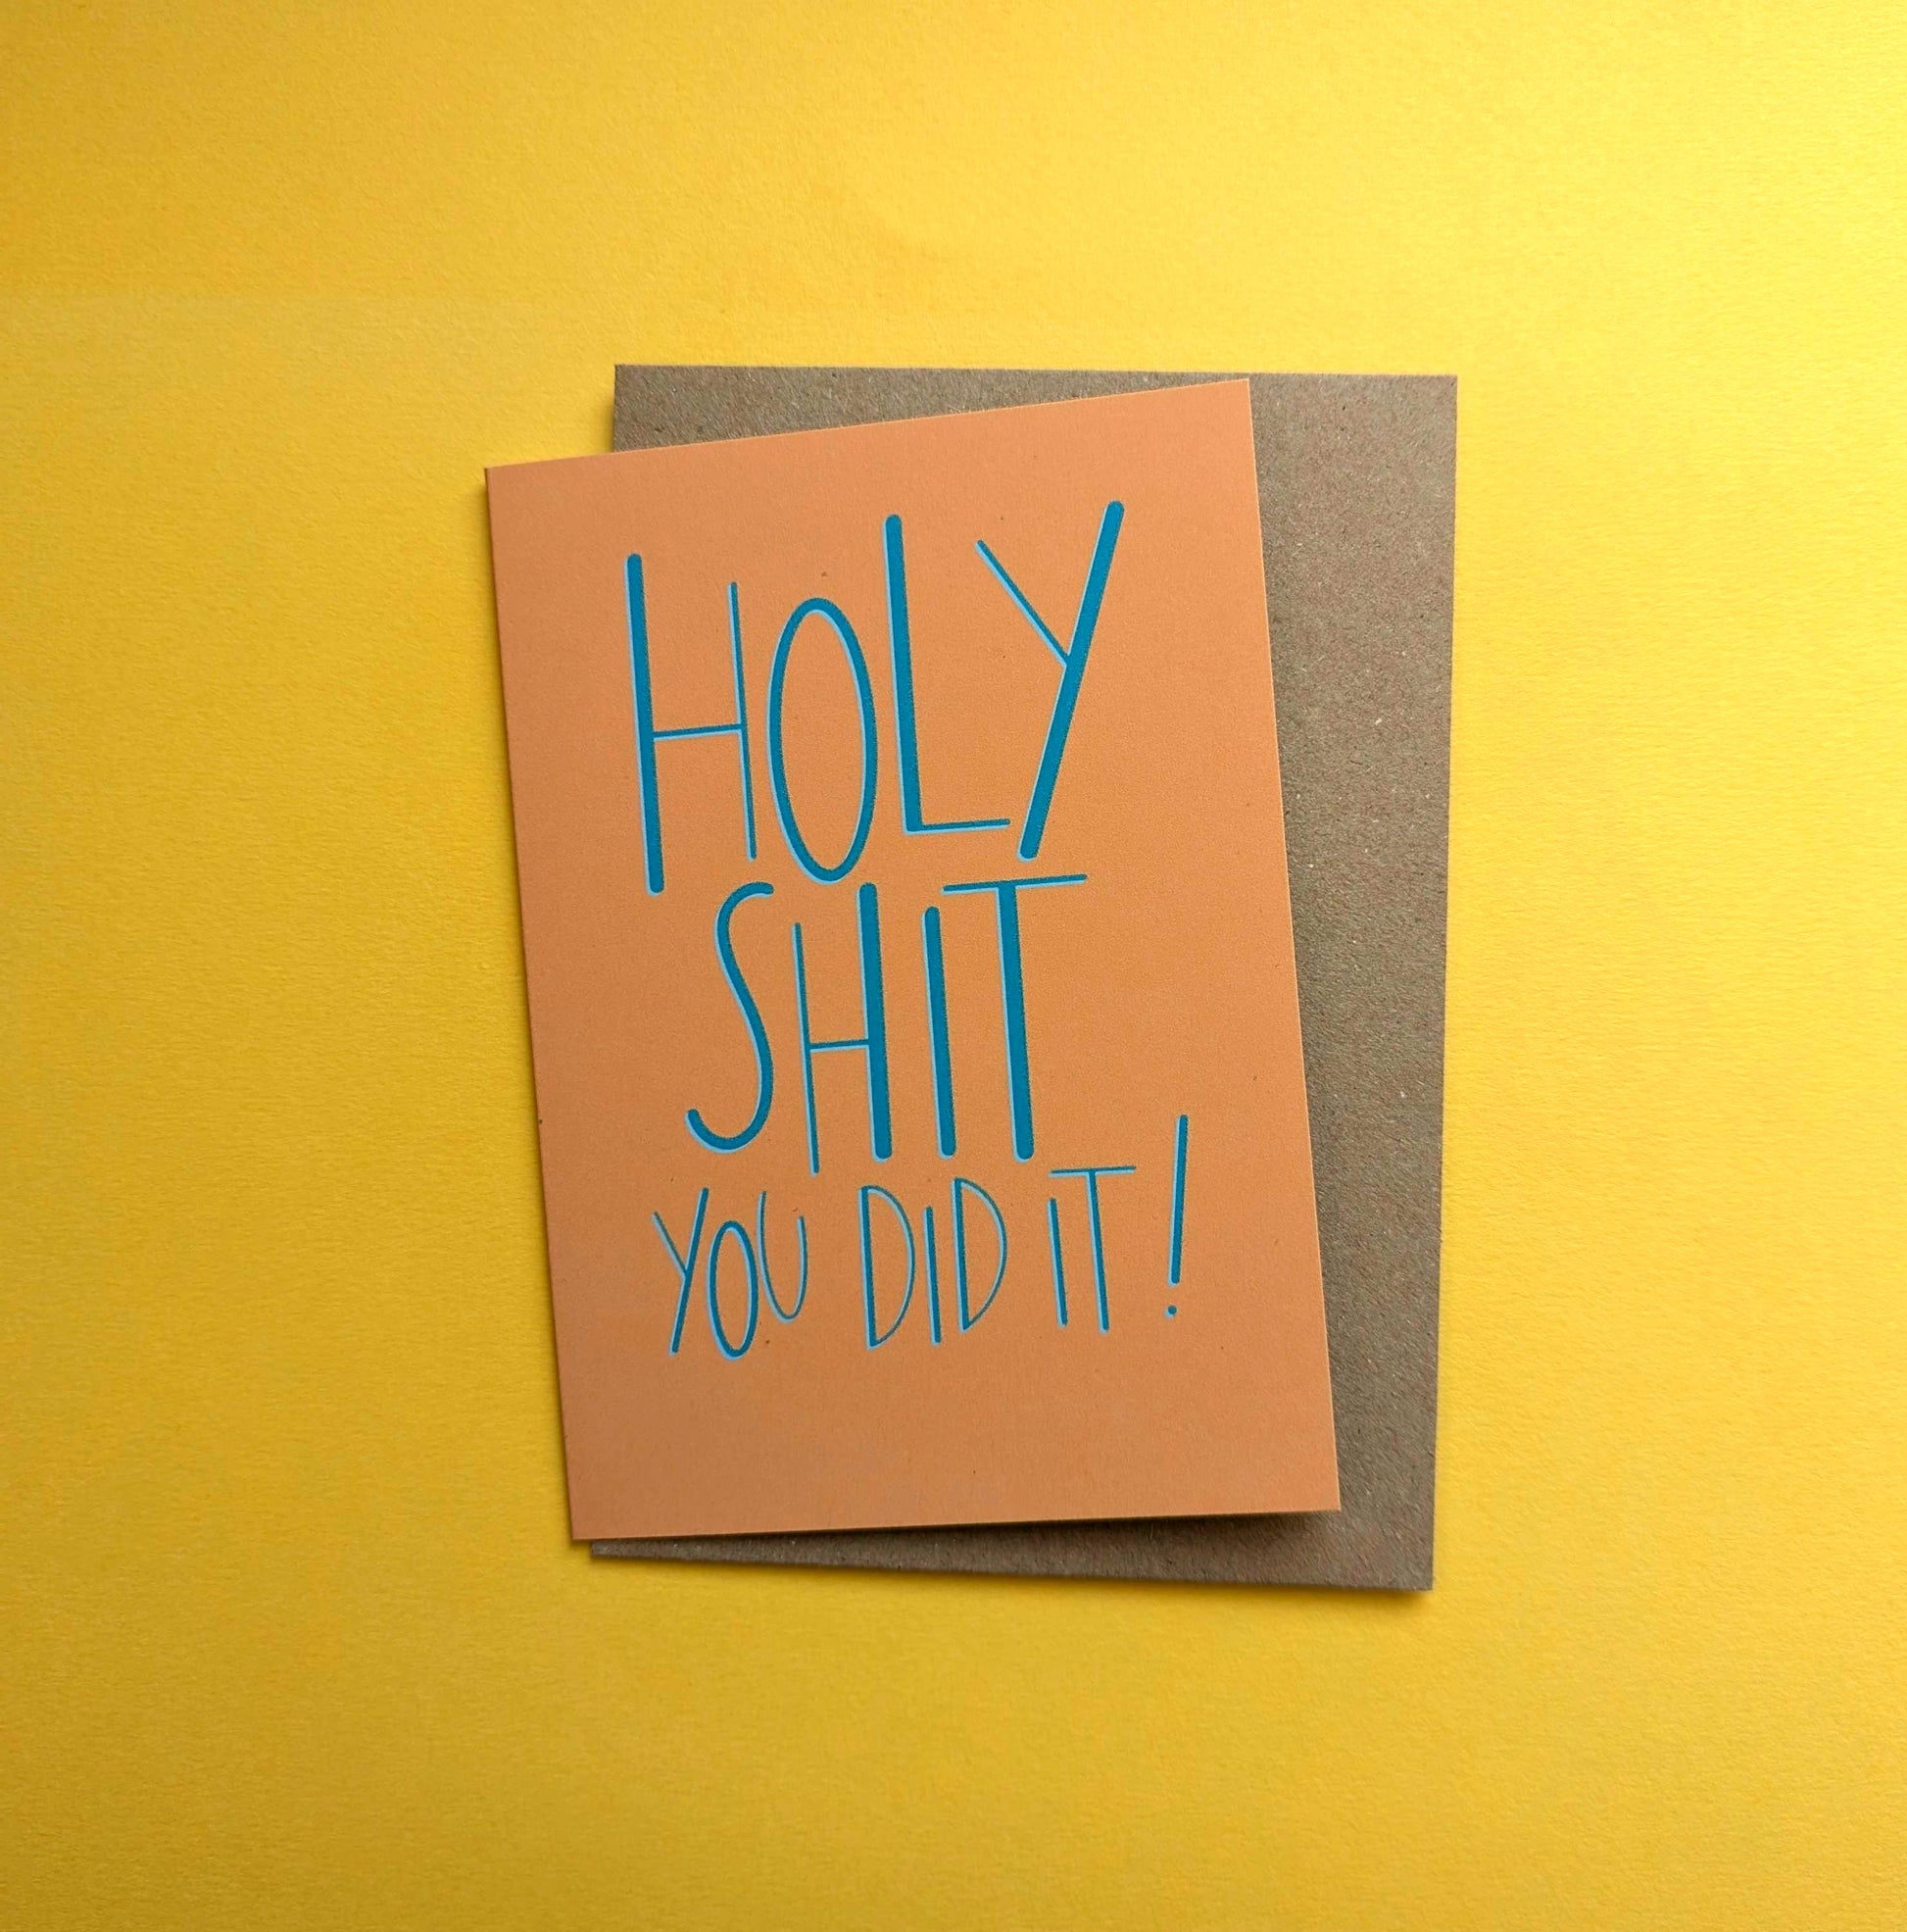 HOLY
SHIT
YOU DID IT!